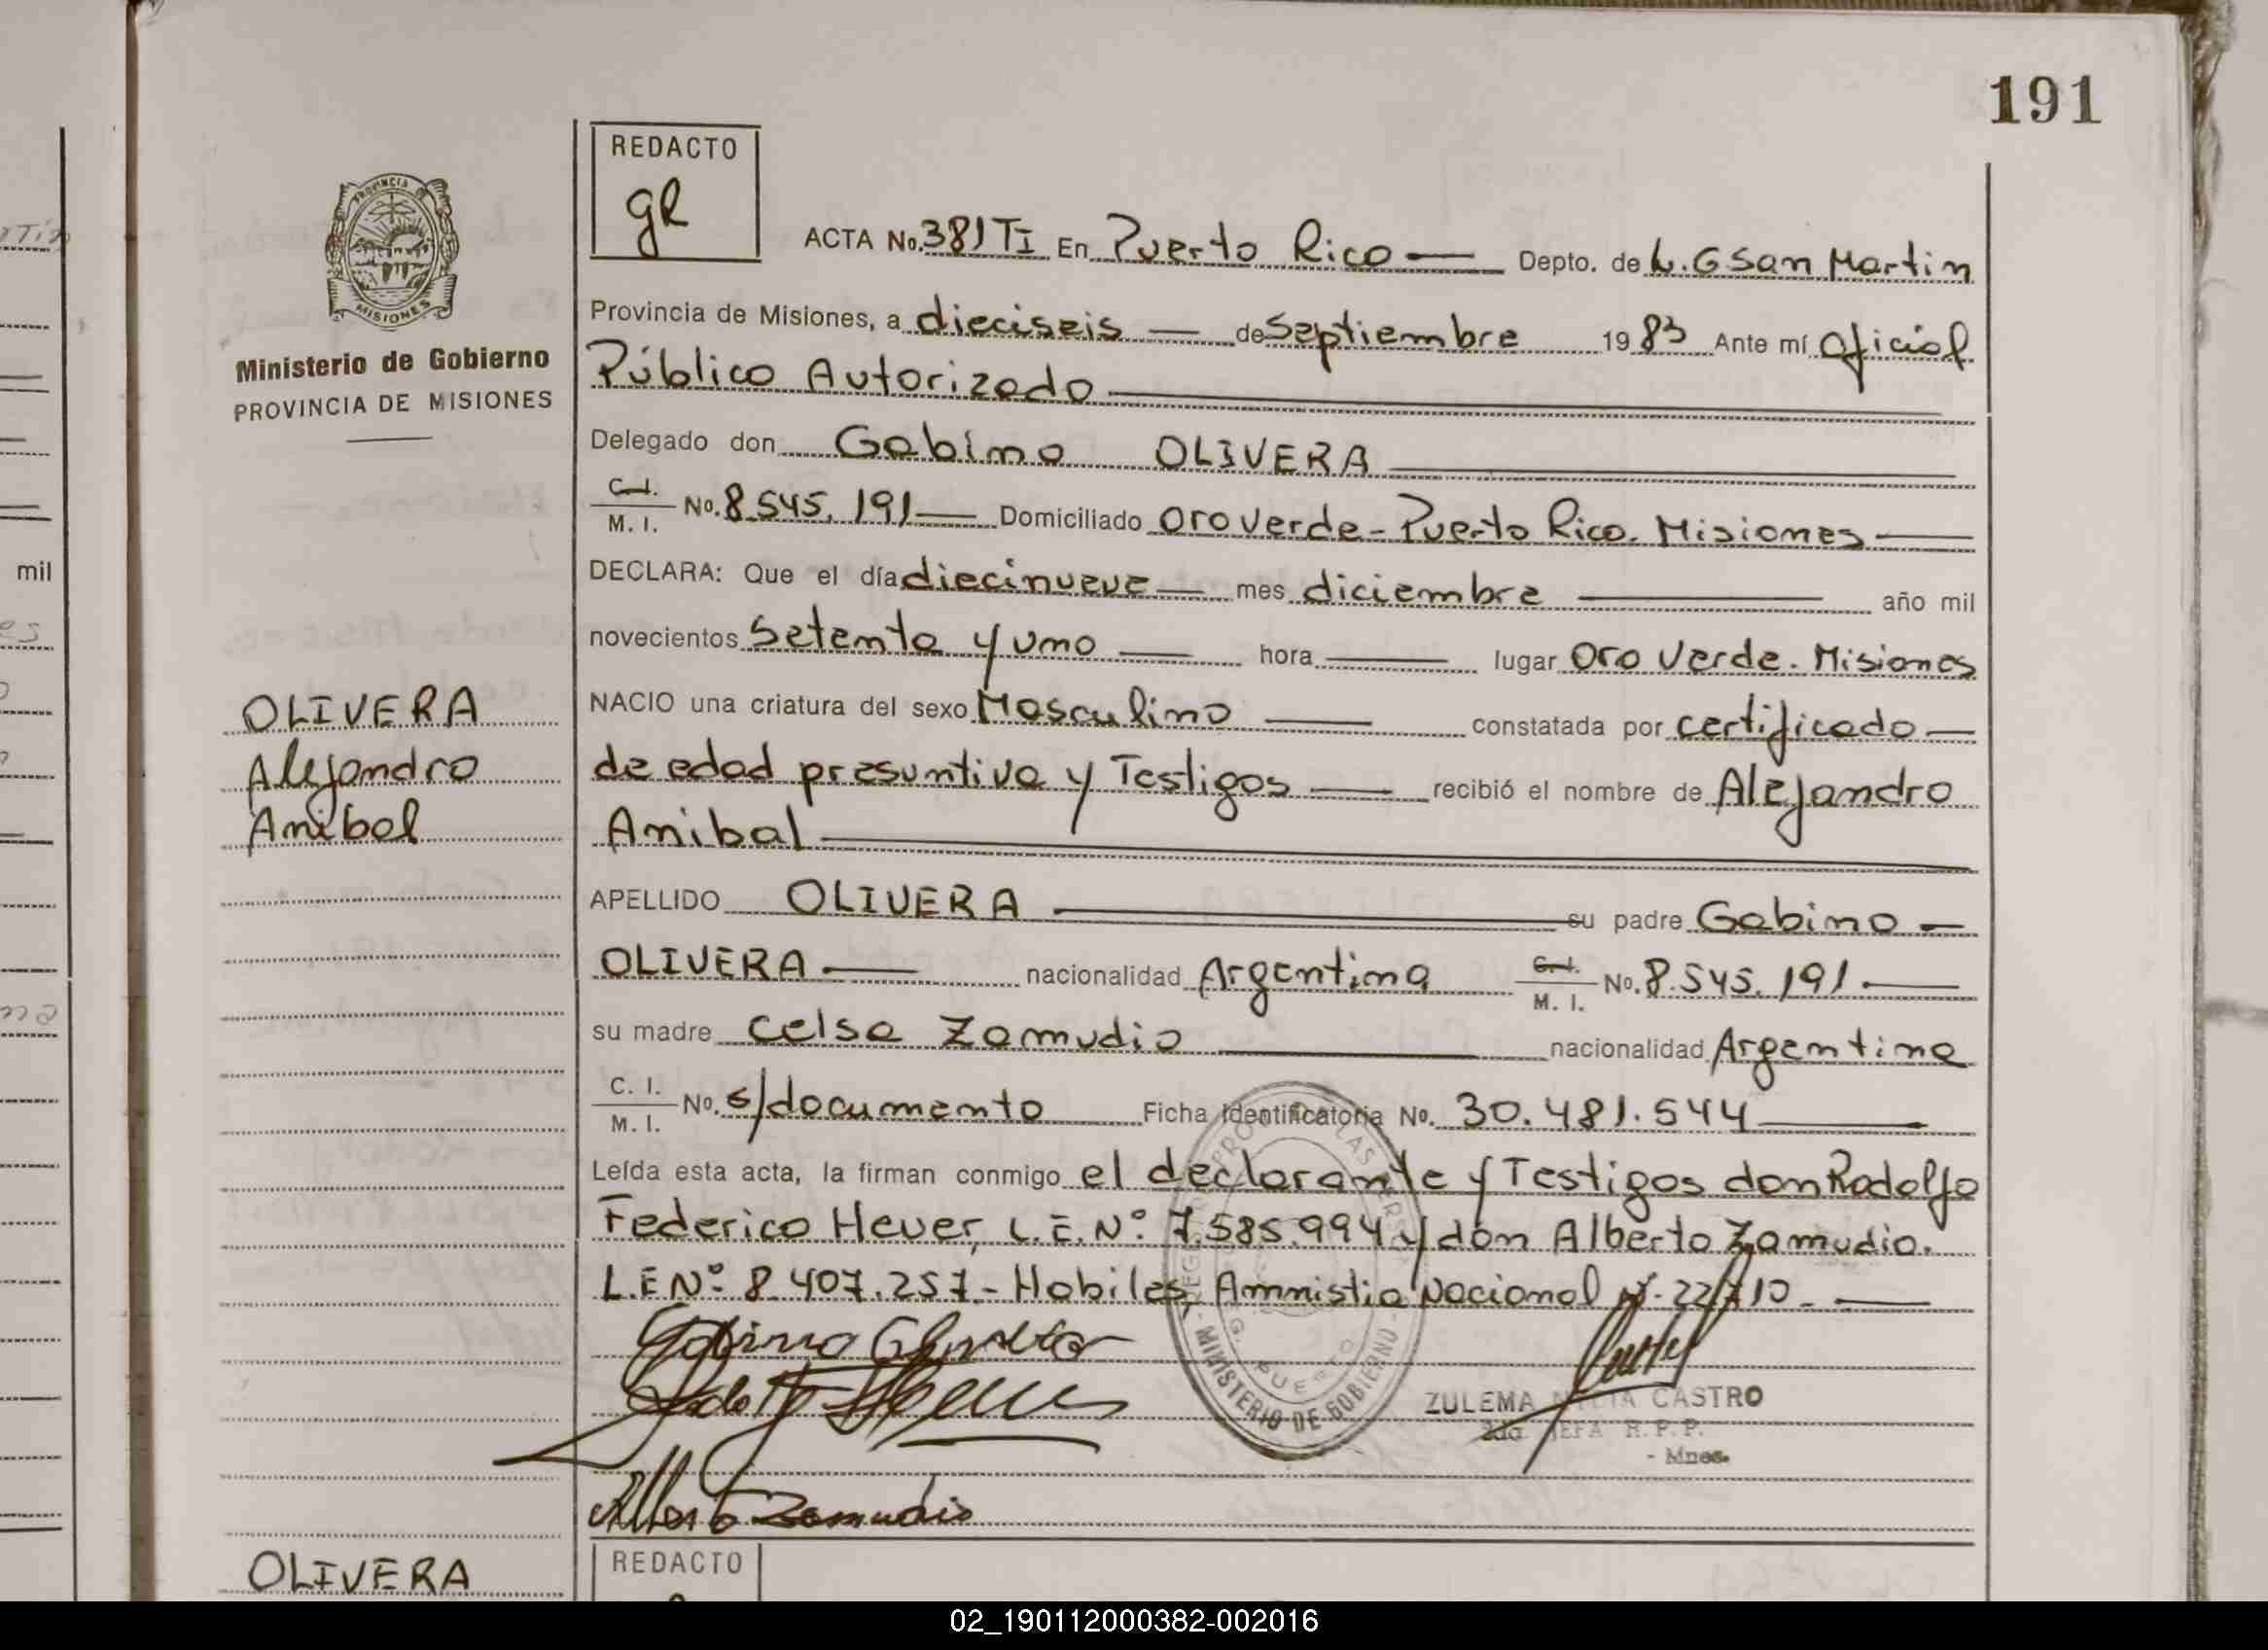 191
REDACTO
gR
PROVINCIA DE
MISIONES
Ministerio de Gobierno
PROVINCIA DE MISIONES
ACTA No. 381 TI En Puerto Rico — Depto. de L. G San Martin
Provincia de Misiones, a dieciseis — de Septiembre 1983 Ante mí Oficial
Público Autorizado
Delegado don Gabino OLIVERA
C.I. M. I. No. 8.545.191 — Domiciliado Oro Verde - Puerto Rico. Misiones —
DECLARA: Que el día diecinueve — mes diciembre — año mil
novecientos Setenta y uno — hora — lugar Oro Verde. Misiones
NACIO una criatura del sexo Masculino — constatada por certificado —
de edad presuntiva y Testigos — recibió el nombre de Alejandro
Anibal
APELLIDO OLIVERA — su padre Gabino —
OLIVERA — nacionalidad Argentina C.I. M. I. No. 8.545.191. —
su madre Celsa Zamudio — nacionalidad Argentina
C. I. M. I. No. s/documento Ficha Identificatoria No. 30.481.544 —
Leída esta acta, la firman conmigo el declarante y Testigos don Rodolfo
Federico Heuer, L.E. Nº 7.585.994 y don Alberto Zamudio.
L.E Nº 8.407.257.- Habiles, Amnistia Nacional Nº 22710. —
OLIVERA
Alejandro
Anibal
MINISTERIO DE GOBIERNO
ZULEMA CASTRO
2da. JEFA R. P. P.
- Mnes.
Alberto Zamudio
OLIVERA
REDACTO
mil
02_190112000382-002016